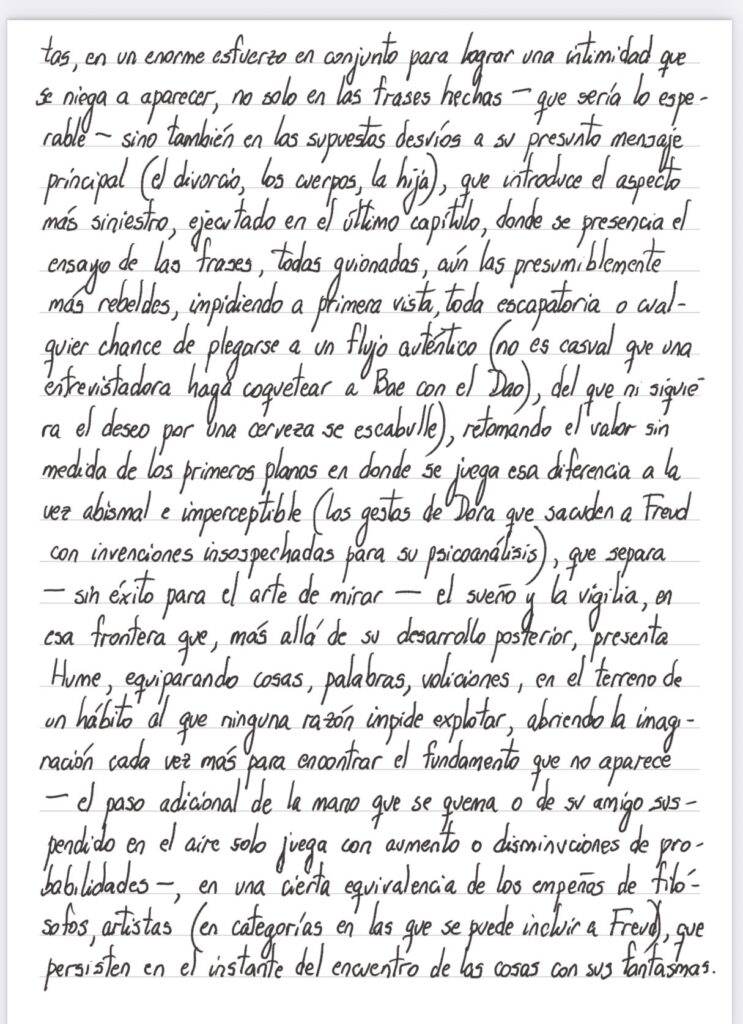 tas, en un enorme esfuerzo en conjunto para lograr una intimidad que
se niega a aparecer, no solo en las frases hechas – que sería lo espe-
rable – sino también en los supuestos desvíos a su presunto mensaje
principal (el divorcio, los cuerpos, la hija), que introduce el aspecto
más siniestro, ejecutado en el último capítulo, donde se presencia el
ensayo de las frases, todas guionadas, aún las presumiblemente
más rebeldes, impidiendo a primera vista, toda escapatoria o cual-
quier chance de plegarse a un flujo auténtico (no es casual que una
entrevistadora haga coquetear a Bae con el Dao), del que ni siquie-
ra el deseo por una cerveza se escabulle), retomando el valor sin
medida de los primeros planos en donde se juega esa diferencia a la
vez abismal e imperceptible (los gestos de Dora que sacuden a Freud
con invenciones insospechadas para su psicoanálisis), que separa
– sin éxito para el arte de mirar – el sueño y la vigilia, en
esa frontera que, más allá de su desarrollo posterior, presenta
Hume, equiparando cosas, palabras, voliciones, en el terreno de
un hábito al que ninguna razón impide explotar, abriendo la imagi-
nación cada vez más para encontrar el fundamento que no aparece
– el paso adicional de la mano que se quema o de su amigo sus-
pendido en el aire solo juega con aumento o disminuciones de pro-
babilidades –, en una cierta equivalencia de los empeños de filó-
sofos, artistas (en categorías en las que se puede incluir a Freud), que
persisten en el instante del encuentro de las cosas con sus fantasmas.